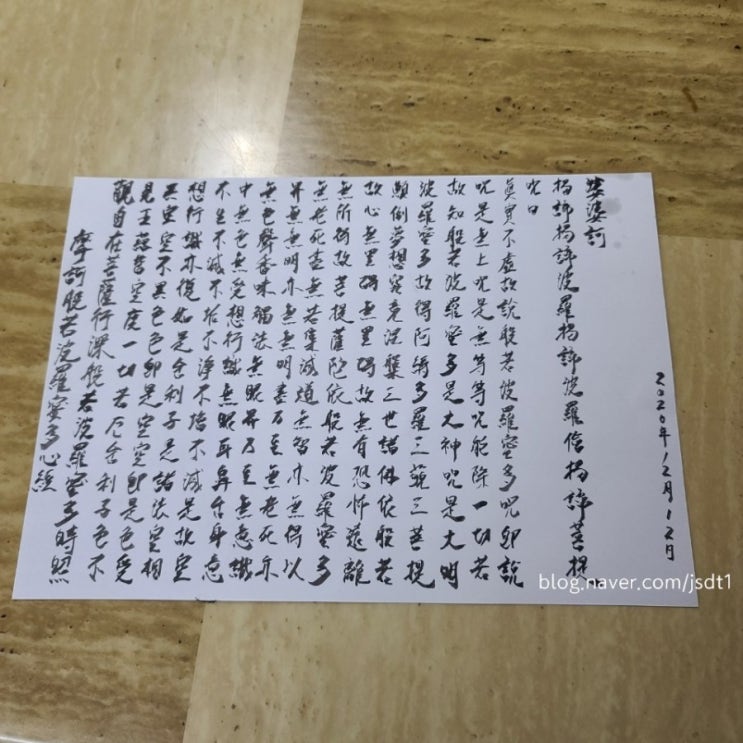 摩訶般若波羅蜜多心経
觀自在菩薩行深般若波羅蜜多時照
見五蘊皆空度一切苦厄舍利子色不
異空空不異色色卽是空空卽是色受
想行識亦復如是舍利子是諸法空相
不生不滅不垢不淨不増不減是故空
中無色無受想行識無眼耳鼻舌身意
無色聲香味觸法無眼界乃至無意識
界無無明亦無無明盡乃至無老死亦
無老死盡無苦集滅道無智亦無得以
無所得故菩提薩埵依般若波羅蜜多
故心無罣碍無罣碍故無有恐怖遠離
顚倒夢想究竟涅槃三世諸佛依般若
波羅蜜多故得阿耨多羅三藐三菩提
故知般若波羅蜜多是大神呪是大明
呪是无上呪是無等等呪能除一切苦
眞實不虛故說般若波羅蜜多呪卽說
呪曰
揭諦揭諦波羅揭諦波羅僧揭諦菩提
娑婆訶
2020年12月12日
blog.naver.com/jsdt1